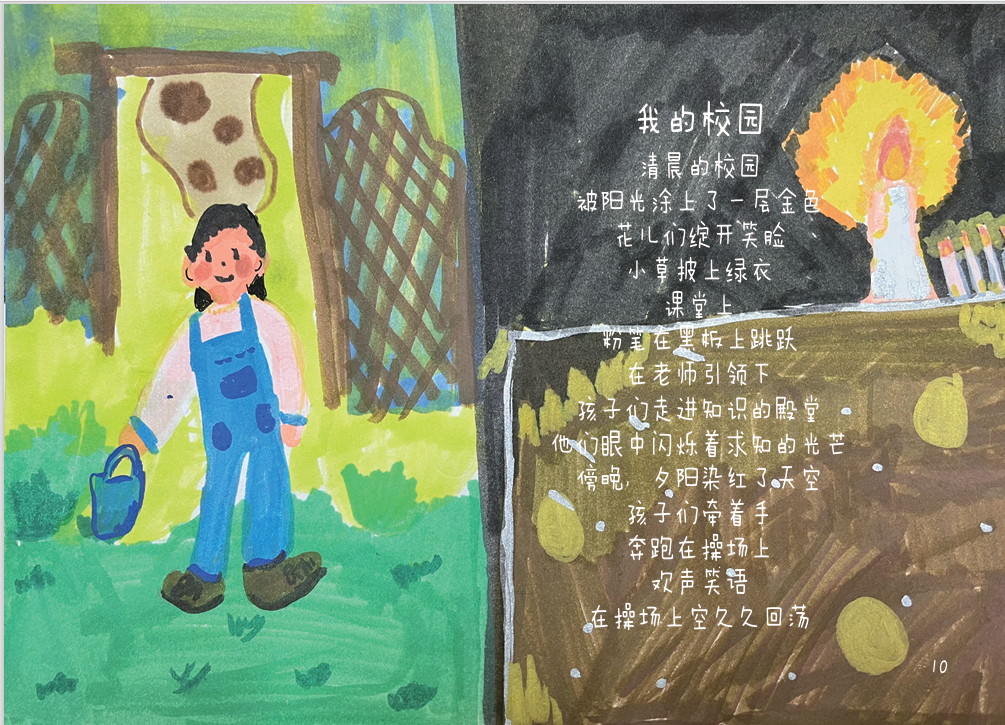 我的校园
清晨的校园
被阳光涂上了一层金色
花儿们绽开笑脸
小草披上绿衣
课堂上
粉笔在黑板上跳跃
在老师引领下
孩子们走进知识的殿堂
他们眼中闪烁着求知的光芒
傍晚，夕阳染红了天空
孩子们牵着手
奔跑在操场上
欢声笑语
在操场上空久久回荡
10